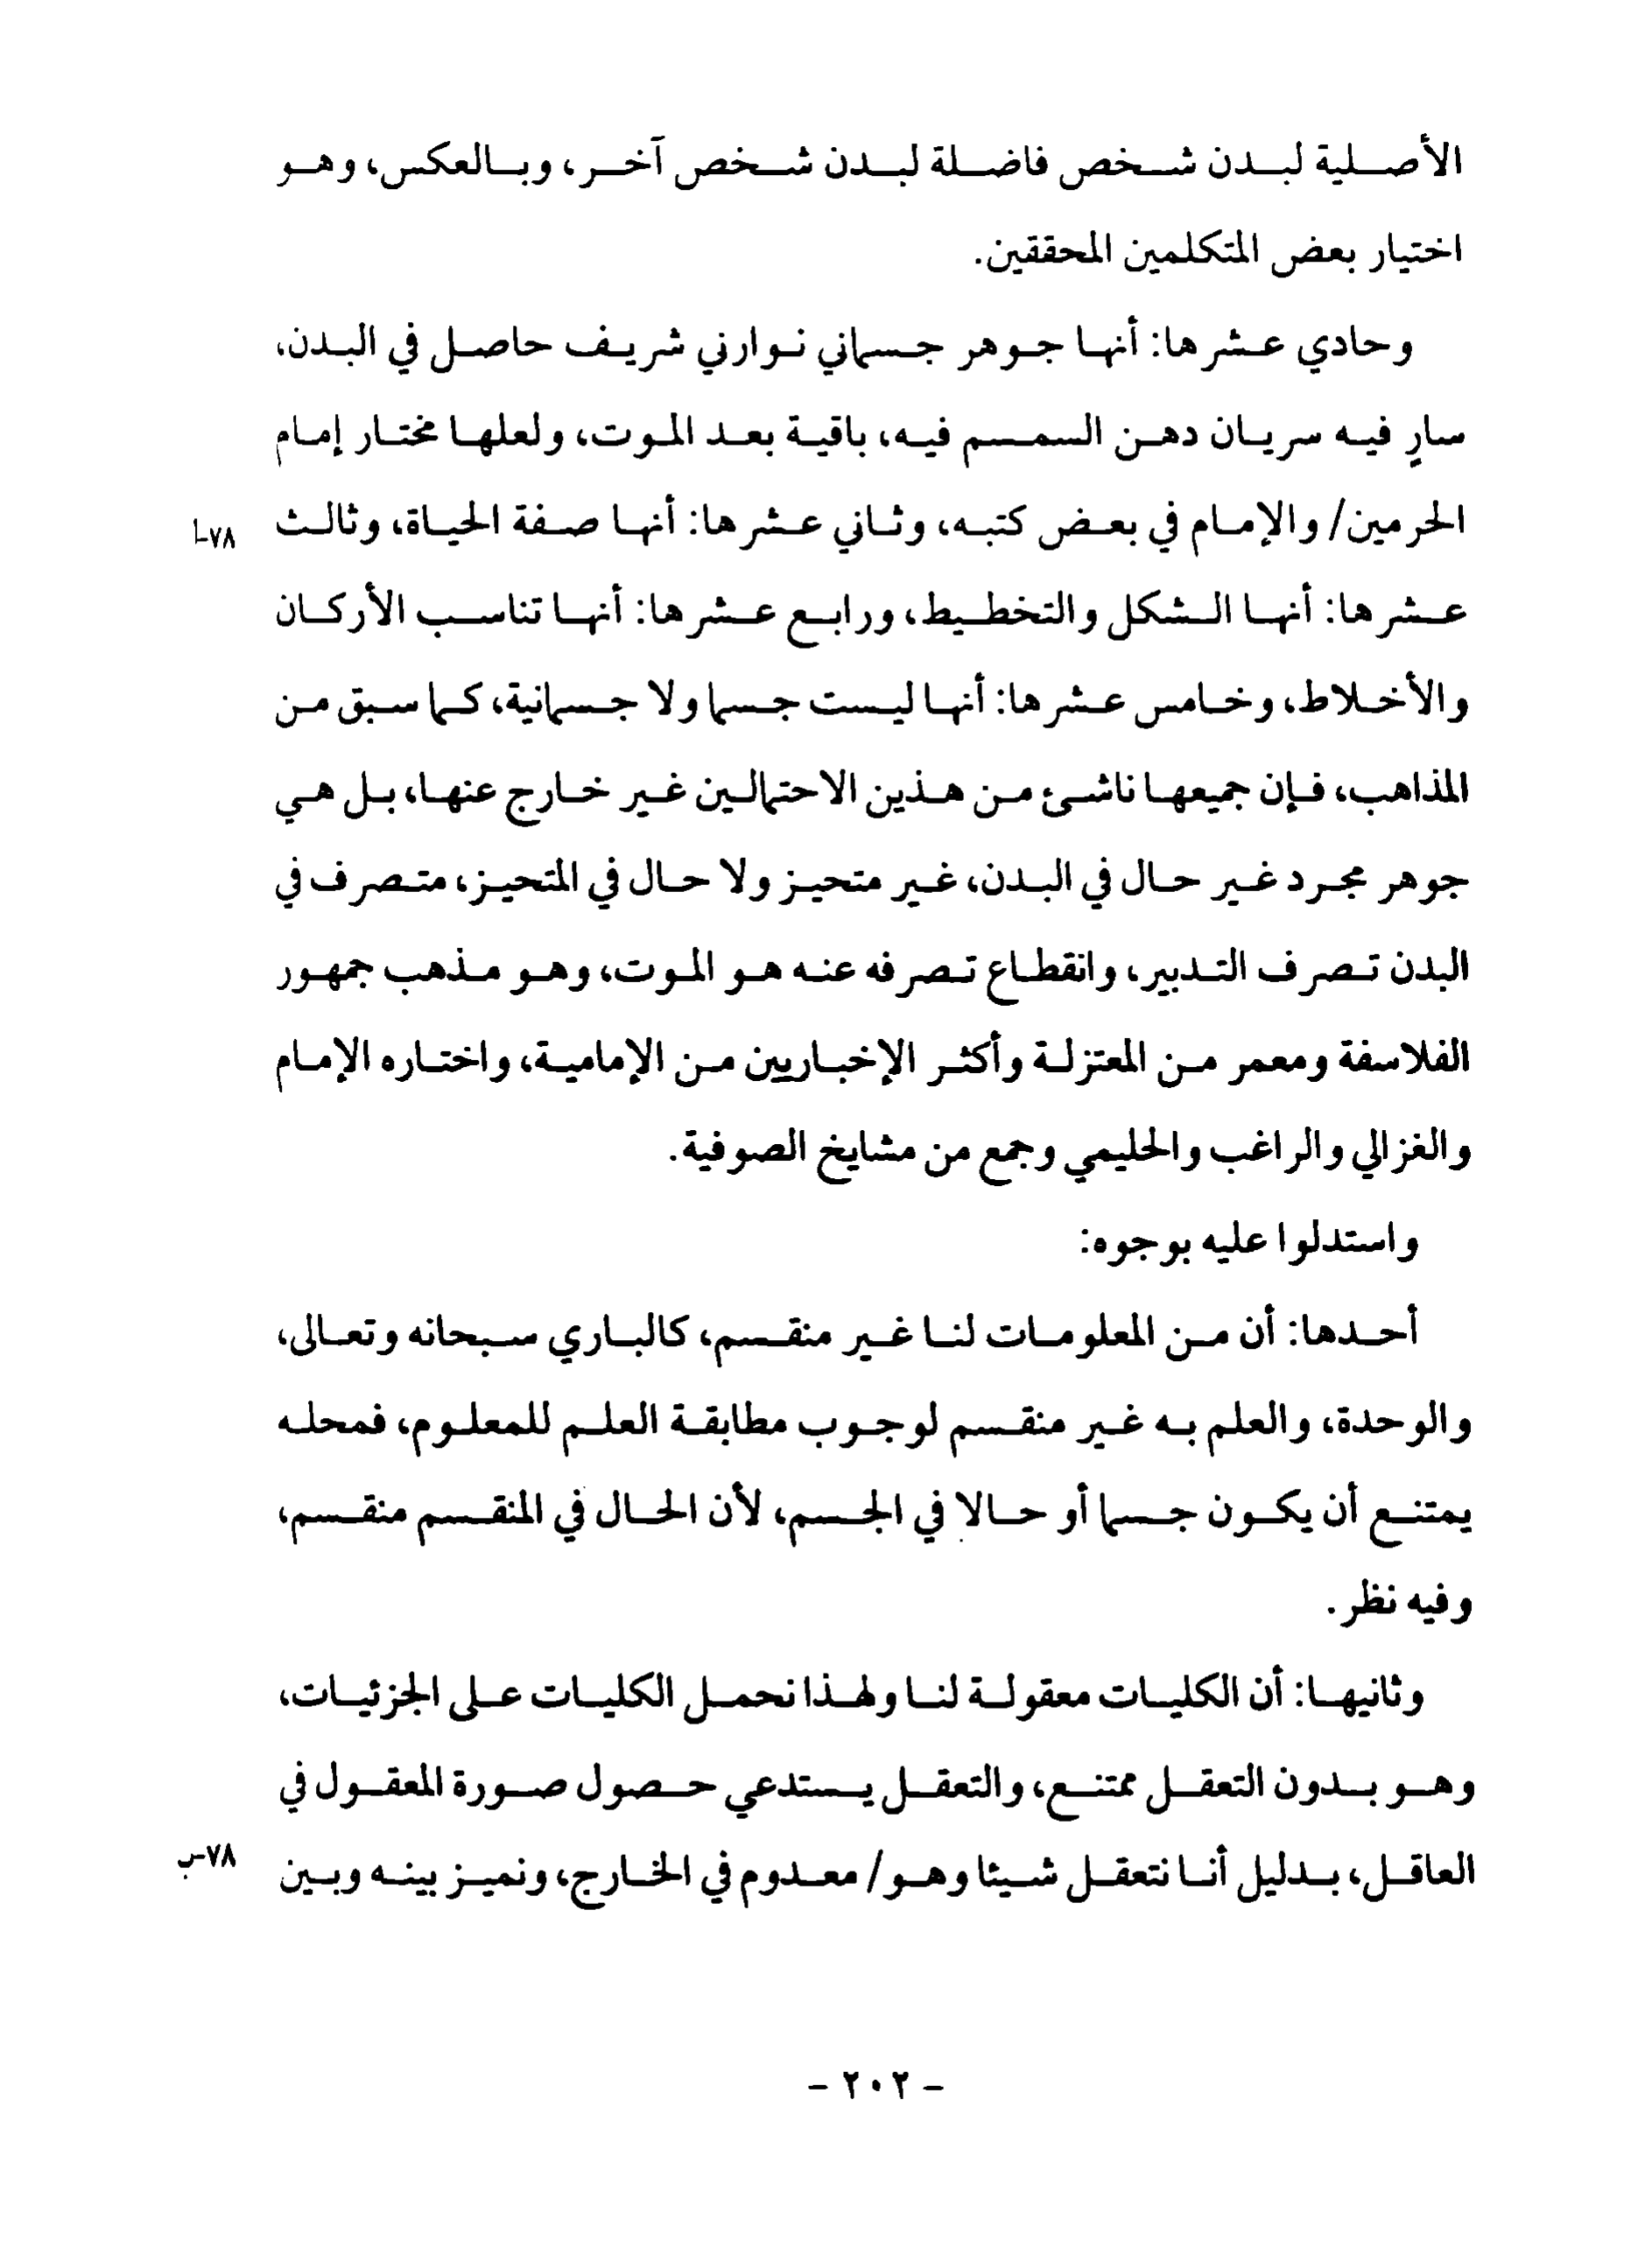 الأصلية لبدن شخص فاضلة لبدن شخص آخر، وبالعكس، وهو
اختيار بعض المتكلمين المحققين.
وحادي عشرها: أنها جوهر جسماني نوارني شريف حاصل في البدن،
سارٍ فيه سريان دهن السمسم فيه، باقية بعد الموت، ولعلها مختار إمام
الحرمين/ والإمام في بعض كتبه، وثاني عشرها: أنها صفة الحياة، وثالث
٧٨-أ
عشرها: أنها الشكل والتخطيط، ورابع عشرها: أنها تناسب الأركان
والأخلاط، وخامس عشرها: أنها ليست جسما ولا جسمانية، كما سبق من
المذاهب، فإن جميعها ناشئ من هذين الاحتمالين غير خارج عنها، بل هي
جوهر مجرد غير حال في البدن، غير متحيز ولا حال في المتحيز، متصرف في
البدن تصرف التدبير، وانقطاع تصرفه عنه هو الموت، وهو مذهب جمهور
الفلاسفة ومعمر من المعتزلة وأكثر الإخباريين من الإمامية، واختاره الإمام
والغزالي والراغب والحليمي وجمع من مشايخ الصوفية.
واستدلوا عليه بوجوه:
أحدها: أن من المعلومات لنا غير منقسم، كالباري سبحانه وتعالى،
والوحدة، والعلم به غير منقسم لوجوب مطابقة العلم للمعلوم، فمحله
يمتنع أن يكون جسما أو حالا في الجسم، لأن الحال في المنقسم منقسم،
وفيه نظر.
وثانيها: أن الكليات معقولة لنا ولهذا نحمل الكليات على الجزئيات،
وهو بدون التعقل ممتنع، والتعقل يستدعي حصول صورة المعقول في
العاقل، بدليل أنا نتعقل شيئا وهو/ معدوم في الخارج، ونميز بينه وبين
٧٨-ب
- ٢٠٢ -